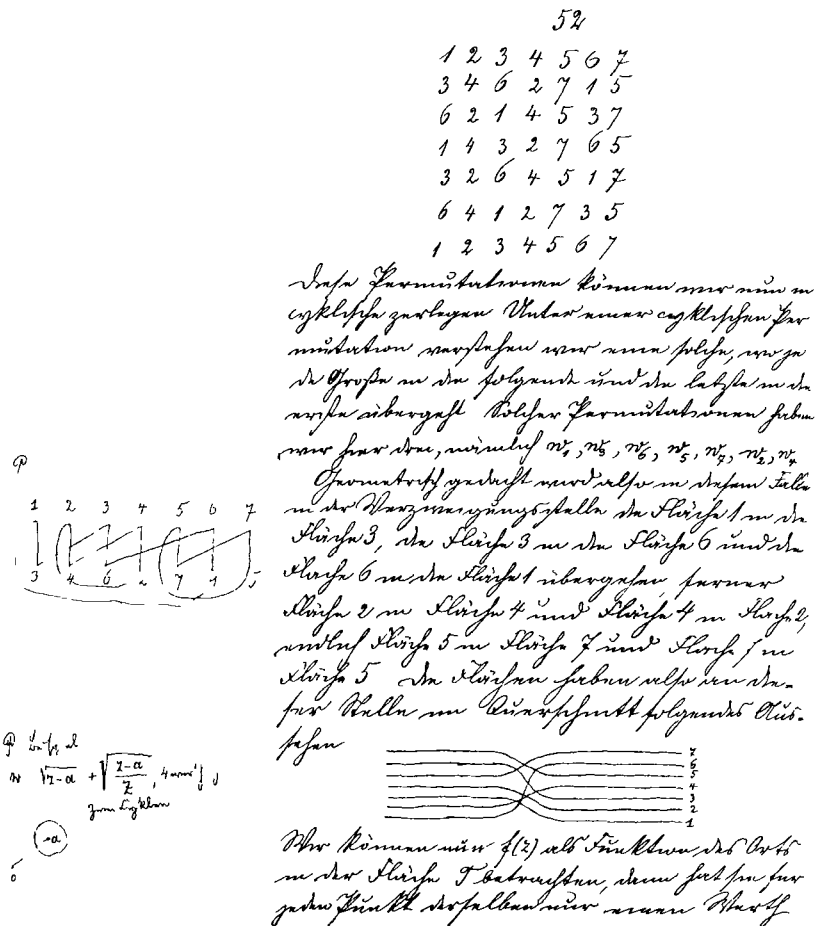 52
1 2 3 4 5 6 7
3 4 6 2 7 1 5
6 2 1 4 5 3 7
1 4 3 2 7 6 5
3 2 6 4 5 1 7
6 4 1 2 7 3 5
1 2 3 4 5 6 7
Diese Permutationen können wir nun in
cyklische zerlegen Unter einer cyklischen Per
mutation verstehen wir eine solche, wo je
de Größe in die folgende und die letzte in die
erste übergeht Solcher Permutationen haben
wir hier drei, nämlich w₁, w₃, w₆, w₅, w₇, w₂, w₄
Geometrisch gedacht wird also in diesem Falle
in der Verzweigungsstelle die Fläche 1 in die
Fläche 3, die Fläche 3 in die Fläche 6 und die
Fläche 6 in die Fläche 1 übergehen, ferner
Fläche 2 in Fläche 4 und Fläche 4 in Fläche 2,
endlich Fläche 5 in Fläche 7 und Fläche 7 in
Fläche 5 Die Flächen haben also an die-
ser Stelle im Querschnitt folgendes Aus-
sehen
7
6
5
4
3
2
1
Wir können nun f(z) als Funktion des Orts
in der Fläche T betrachten, dann hat sie für
jeden Punkt derselben nur einen Werth
1 2 3 4 5 6 7
3 4 6 2 7 1 5
√z-a + √(z-a)/z, 4
zwei Cyklen
·a
0